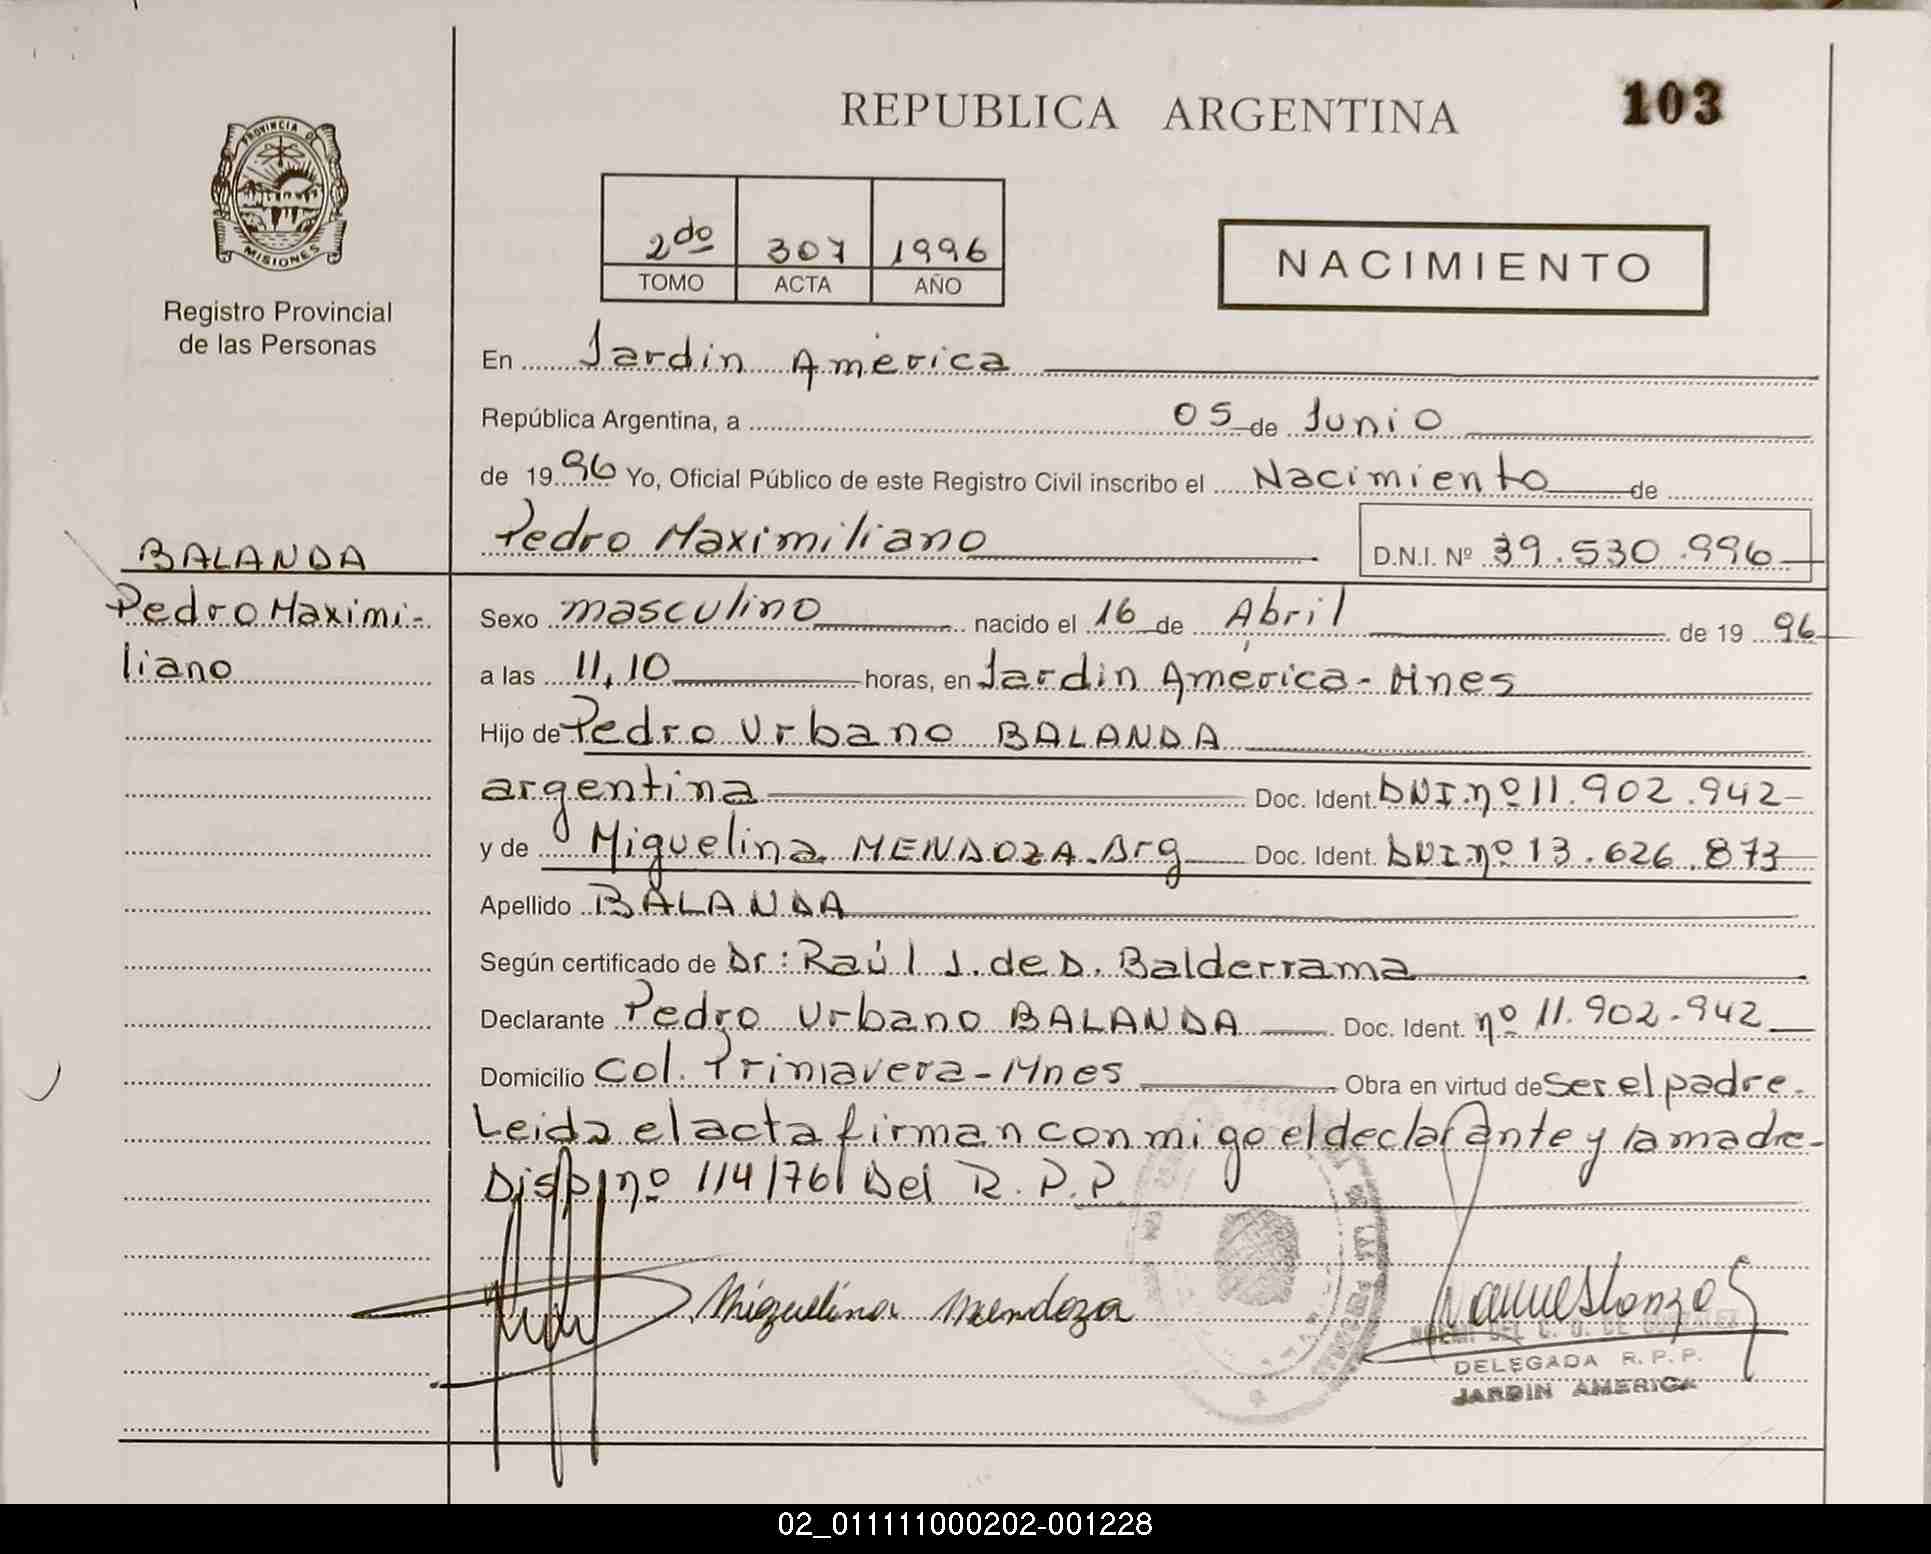 REPUBLICA ARGENTINA
103
PROVINCIA DE
MISIONES
Registro Provincial
de las Personas
2do 307 1996
TOMO ACTA AÑO
NACIMIENTO
En Jardin América
República Argentina, a 05 de Junio
de 1996 Yo, Oficial Público de este Registro Civil inscribo el Nacimiento de
Pedro Maximiliano D.N.I. Nº 39.530.996
BALANDA
Pedro Maximi-
liano
Sexo masculino nacido el 16 de Abril de 1996
a las 11,10 horas, en Jardin América - Mnes
Hijo de Pedro Urbano BALANDA
argentina Doc. Ident. DNI.nº 11.902.942-
y de Miguelina MENDOZA. Arg Doc. Ident. DNI.nº 13.626.873
Apellido BALANDA
Según certificado de Dr: Raúl J. de D. Balderrama
Declarante Pedro Urbano BALANDA Doc. Ident. nº 11.902.942
Domicilio Col. Primavera - Mnes Obra en virtud de ser el padre.
Leida el acta firman conmigo el declarante y la madre-
Disp nº 114/76 Del R.P.P.
Miguelina Mendoza
DELEGADA R.P.P.
JARDIN AMERICA
02_011111000202-001228